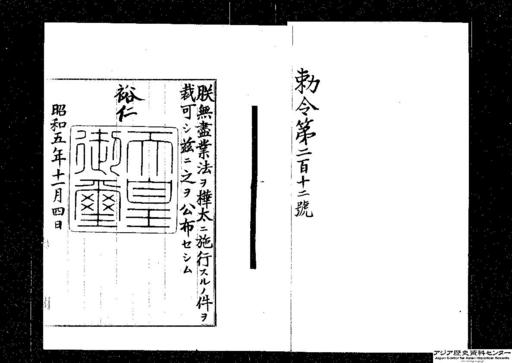 勅令第二百十二號
朕無盡業法ヲ樺太ニ施行スルノ件ヲ
裁可シ茲ニ之ヲ公布セシム
裕仁
天皇
御璽
昭和五年十一月四日
アジア歴史資料センター
Japan Center for Asian Historical Records